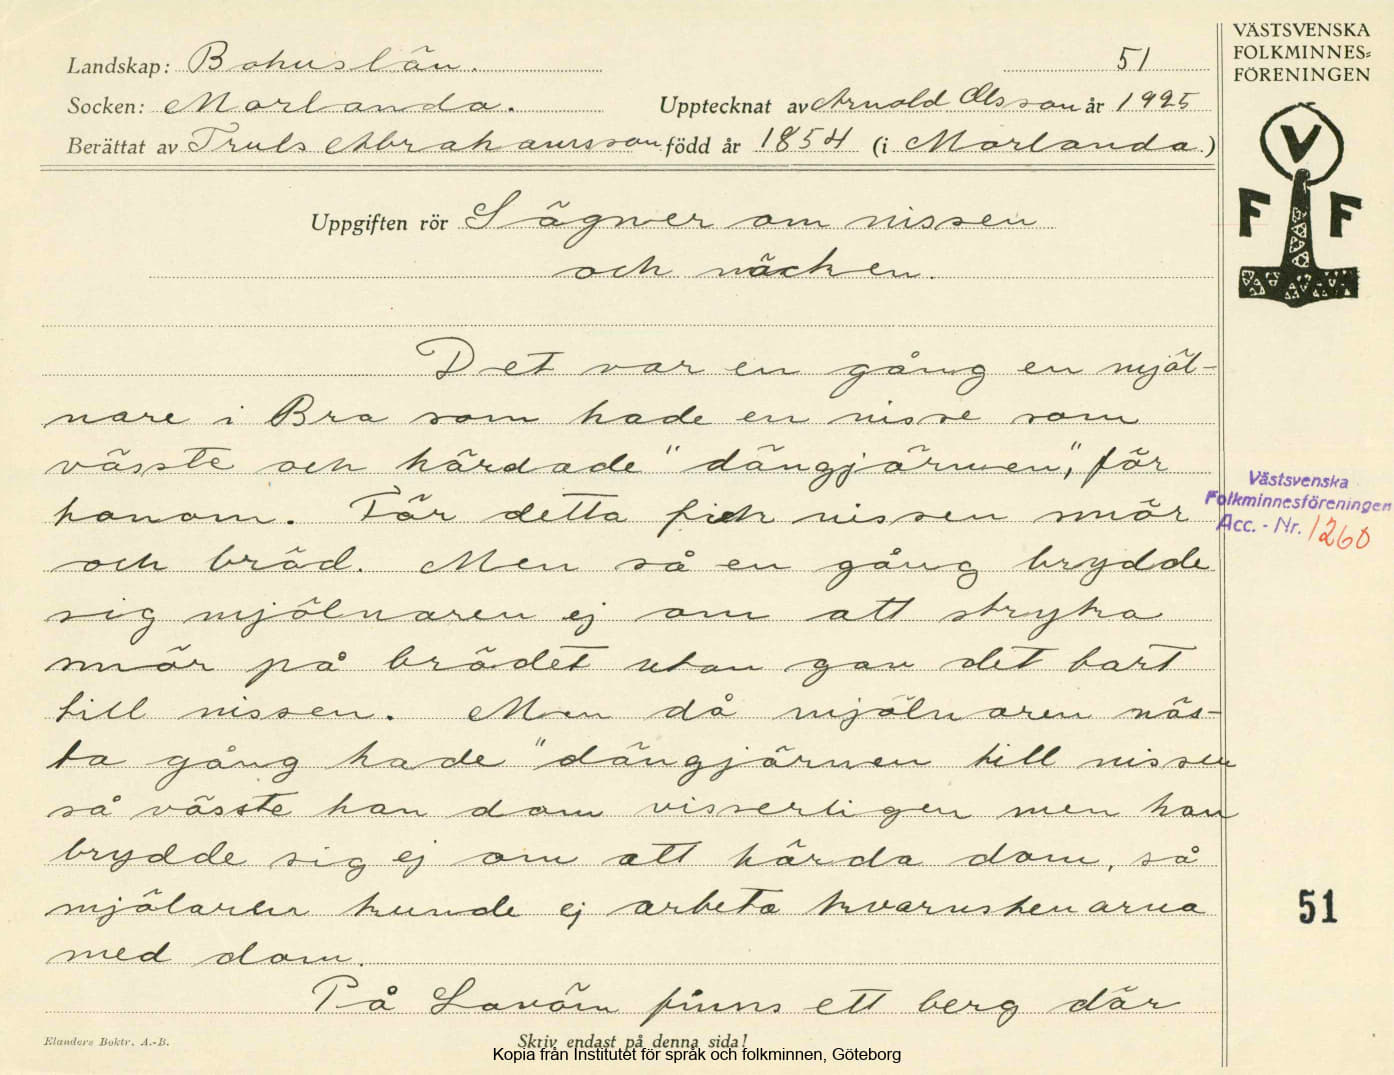 VÄSTSVENSKA
FOLKMINNES=
FÖRENINGEN
V
F F
Landskap: Bohuslän. 51
Socken: Morlanda. Upptecknat av Arnold Olsson år 1925
Berättat av Truls Abrahamsson född år 1854 (i Morlanda.)
Uppgiften rör Sägner om nissen
och näcken.
Det var en gång en mjöl-
nare i Bra som hade en nisse som
vässte och härdade "dängjärnen", för
honom. För detta fick nissen smör
och bröd. Men så en gång brydde
sig mjölnaren ej om att stryka
smör på brödet utan gav det bart
till nissen. Men då mjölnaren näs-
ta gång hade "dängjärnen till nissen
så vässte han dom visserligen men han
brydde sig ej om att härda dom, så
mjölaren kunde ej arbeta kvarnstenarna
med dom.
På Lavön finns ett berg där
Västsvenska
Folkminnesföreningen
Acc. - Nr. 1260
51
Elanders Boktr. A.-B.
Skriv endast på denna sida!
Kopia från Institutet för språk och folkminnen, Göteborg